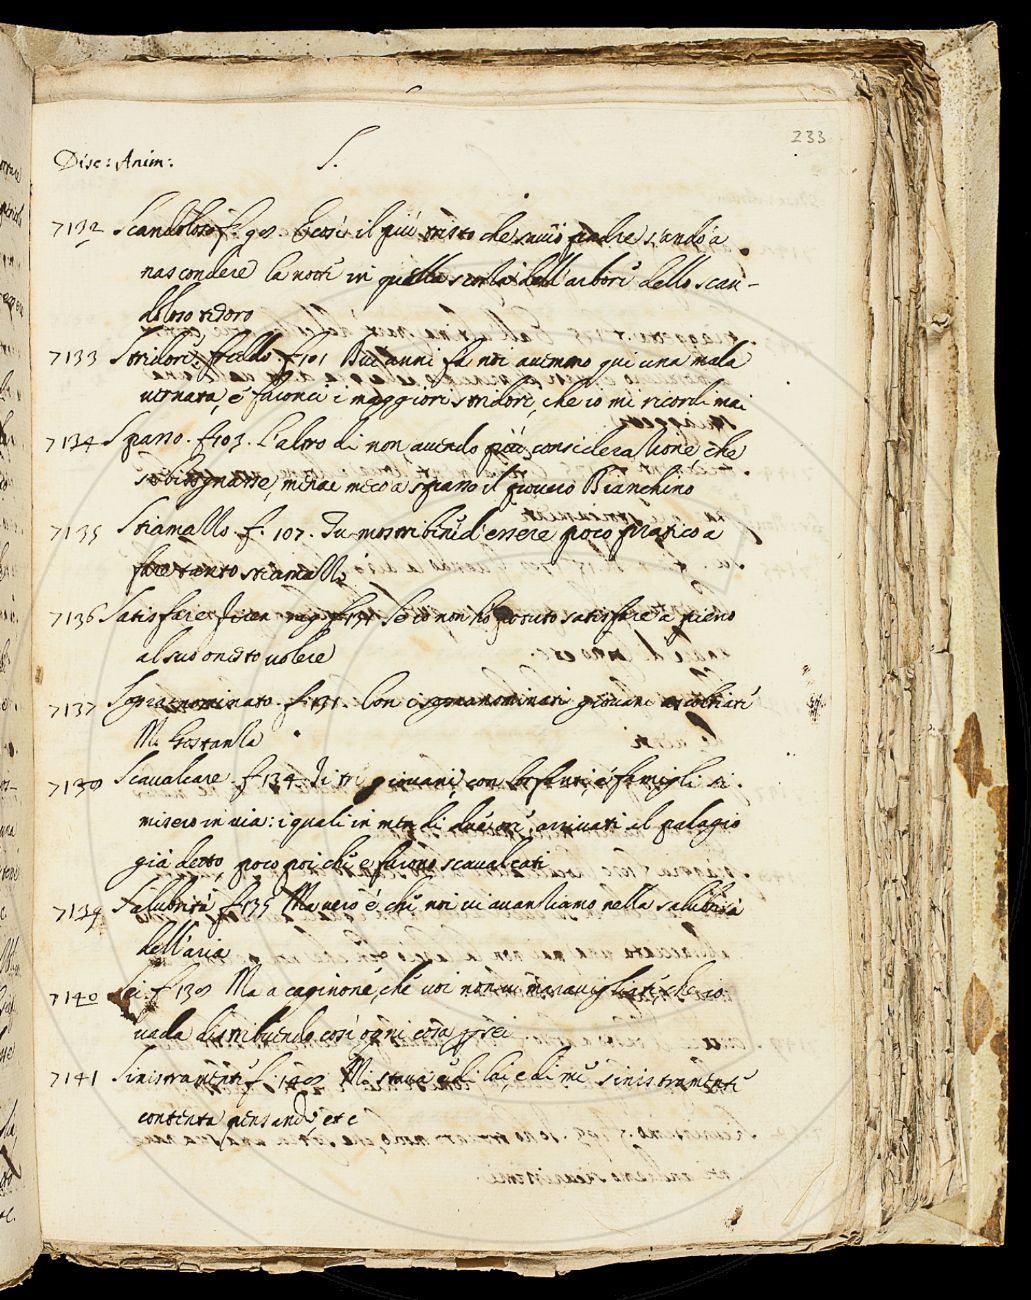 233
Disc: Anim: S.
7132 Scandoloso f. 98. Ecosi il più tristo che savio padre s'andò a
nascondere la notte in quella scorta dell'arbore dello scan-
doloso tidoro
7133 Stridore, freddo f. 101 Due anni fà noi avemmo qui una mala
vernata, e furonci i maggiori stridori, che io mi ricordi mai
7134 Spasso. f. 103. L'altro dì non avendo più considerazione che
si bisognasse, menai meco a spasso il povero Bianchino
7135 Stiamazzo f. 107. Tu mostri bene d'essere poco pratico a
fare tanto stiamazzo
7136 Satisfare f. 131 Se io non ho potuto satisfare a pieno
al suo onesto volere
7137 Sopranominato. f. 131. Con i sopranominati giovani
M. Gostanza
7138 Scavalcare f. 134. I tre giovani con le fanti, e famigli si
misero in via: i quali in men di due ore, arrivati al palagio
già detto, poco poi che e furono scavalcati
7139 Salubrità f. 135 Ma vero è che noi vi avanziamo nella salubrità
dell'aria
7140 Sei. f. 138 Ma a cagione, che voi non vi maravigliate che io
vada distribuendo così ogni cosa per sei
7141 Sinistramente f. 148 Mi stava e di lui e di me sinistramente
contenta pensando, etc